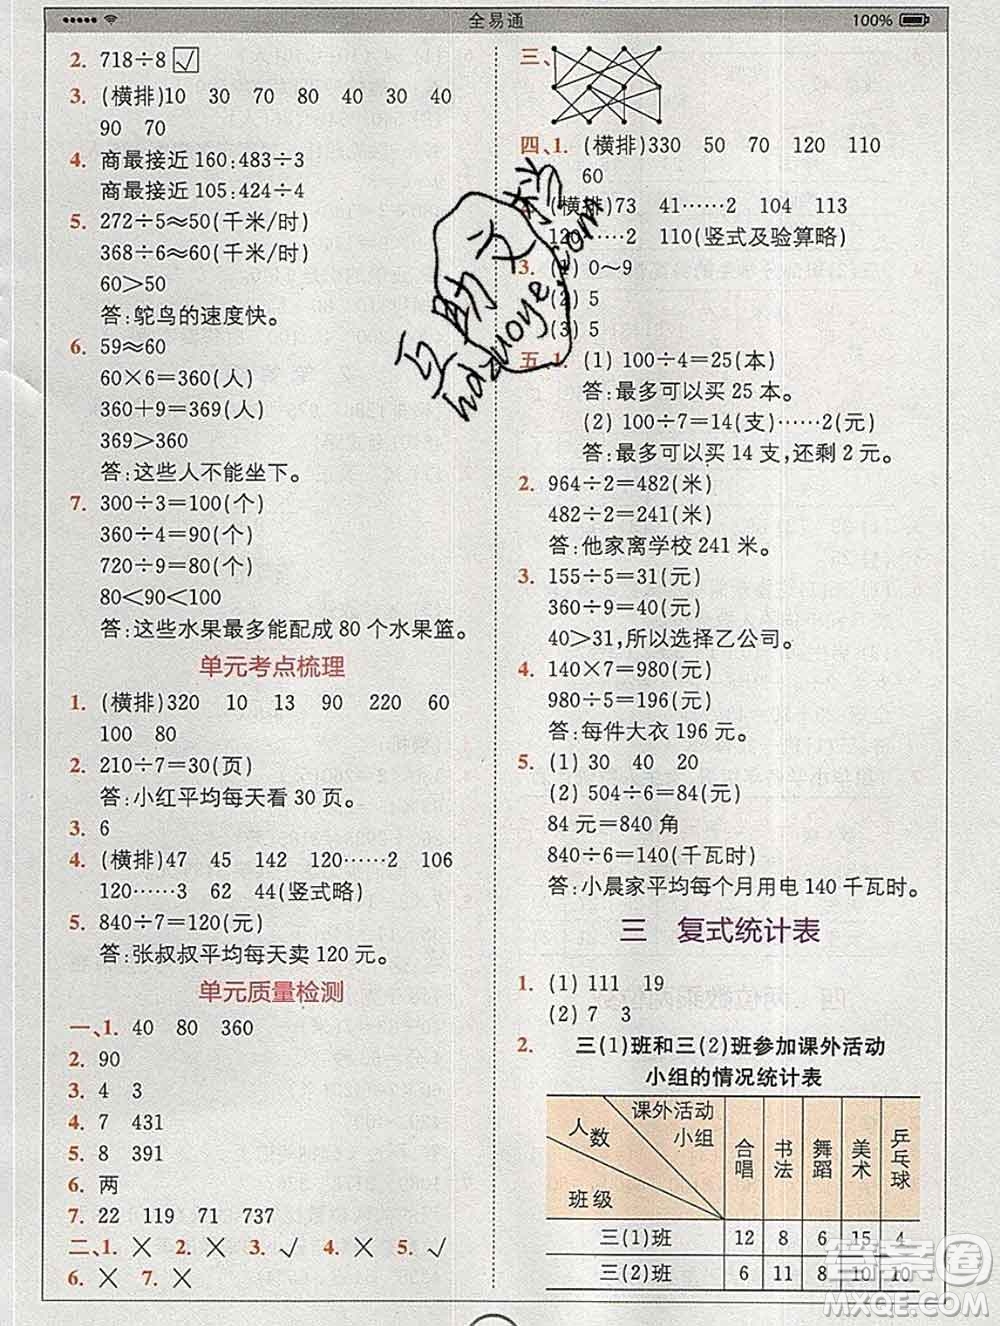 全易通
100%
2. 718÷8 ☑
3. (横排)10 30 70 80 40 30 40
90 70
4. 商最接近 160:483÷3
商最接近 105:424÷4
5. 272÷5≈50(千米/时)
368÷6≈60(千米/时)
60>50
答:鸵鸟的速度快。
6. 59≈60
60×6=360(人)
360+9=369(人)
369>360
答:这些人不能坐下。
7. 300÷3=100(个)
360÷4=90(个)
720÷9=80(个)
80<90<100
答:这些水果最多能配成 80 个水果篮。
单元考点梳理
1. (横排)320 10 13 90 220 60
100 80
2. 210÷7=30(页)
答:小红平均每天看 30 页。
3. 6
4. (横排)47 45 142 120……2 106
120……3 62 44(竖式略)
5. 840÷7=120(元)
答:张叔叔平均每天卖 120 元。
单元质量检测
一、1. 40 80 360
2. 90
3. 4 3
4. 7 431
5. 8 391
6. 两
7. 22 119 71 737
二、1. × 2. × 3. √ 4. × 5. √
6. × 7. ×
三、
四、1. (横排)330 50 70 120 110
60
(横排)73 41……2 104 113
120……2 110(竖式及验算略)
3. (1) 0～9
(2) 5
(3) 5
五、1. (1) 100÷4=25(本)
答:最多可以买 25 本。
(2) 100÷7=14(支)……2(元)
答:最多可以买 14 支,还剩 2 元。
2. 964÷2=482(米)
482÷2=241(米)
答:他家离学校 241 米。
3. 155÷5=31(元)
360÷9=40(元)
40>31,所以选择乙公司。
4. 140×7=980(元)
980÷5=196(元)
答:每件大衣 196 元。
5. (1) 30 40 20
(2) 504÷6=84(元)
84 元=840 角
840÷6=140(千瓦时)
答:小晨家平均每个月用电 140 千瓦时。
三 复式统计表
1. (1) 111 19
(2) 7 3
2. 三(1)班和三(2)班参加课外活动
小组的情况统计表
课外活动小组 人数 班级 合唱 书法 舞蹈 美术 乒乓球
三(1)班 12 8 6 15 4
三(2)班 6 11 8 10 10
互助文档
hdzuoye.com
答案圈
MXQE.COM